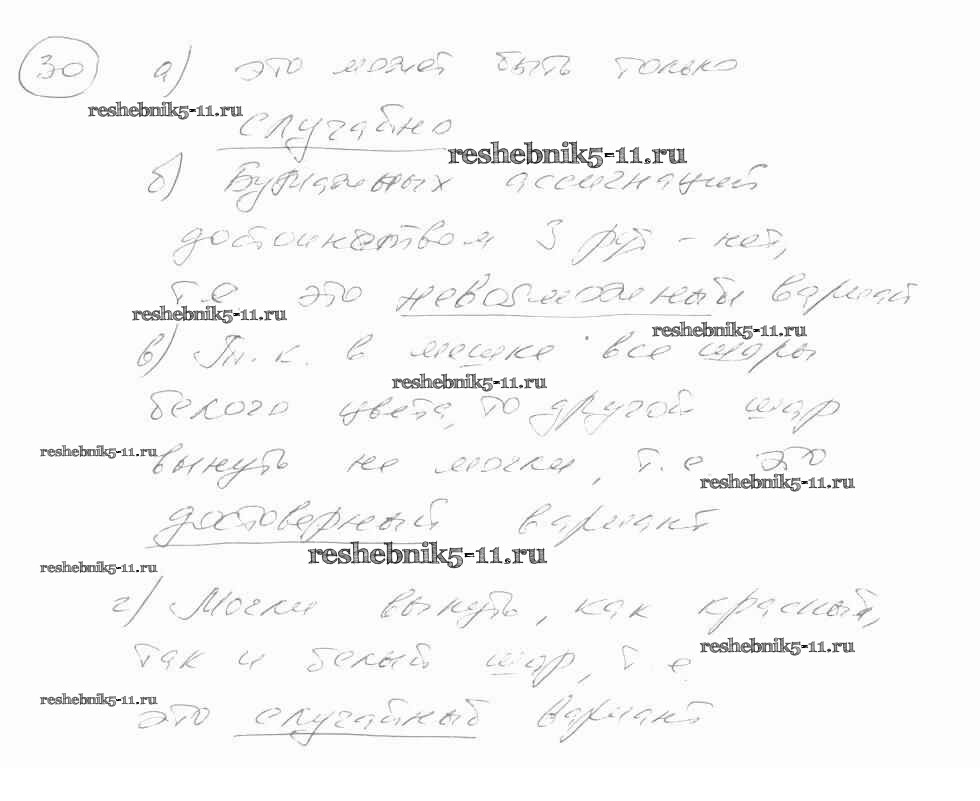 30 а) это может быть только
reshebnik5-11.ru
случайно
reshebnik5-11.ru
б) Бумажных ассигнаций
достоинством 3 руб - нет,
т.е это невозможный вариант
reshebnik5-11.ru
reshebnik5-11.ru
в) Т.к. в мешке все шары
reshebnik5-11.ru
белого цвета, то другой шар
reshebnik5-11.ru
вынуть не могли, т.е это
reshebnik5-11.ru
достоверный вариант
reshebnik5-11.ru
reshebnik5-11.ru
г) Могли вынуть, как красный,
reshebnik5-11.ru
так и белый шар, т.е
reshebnik5-11.ru
это случайный вариант